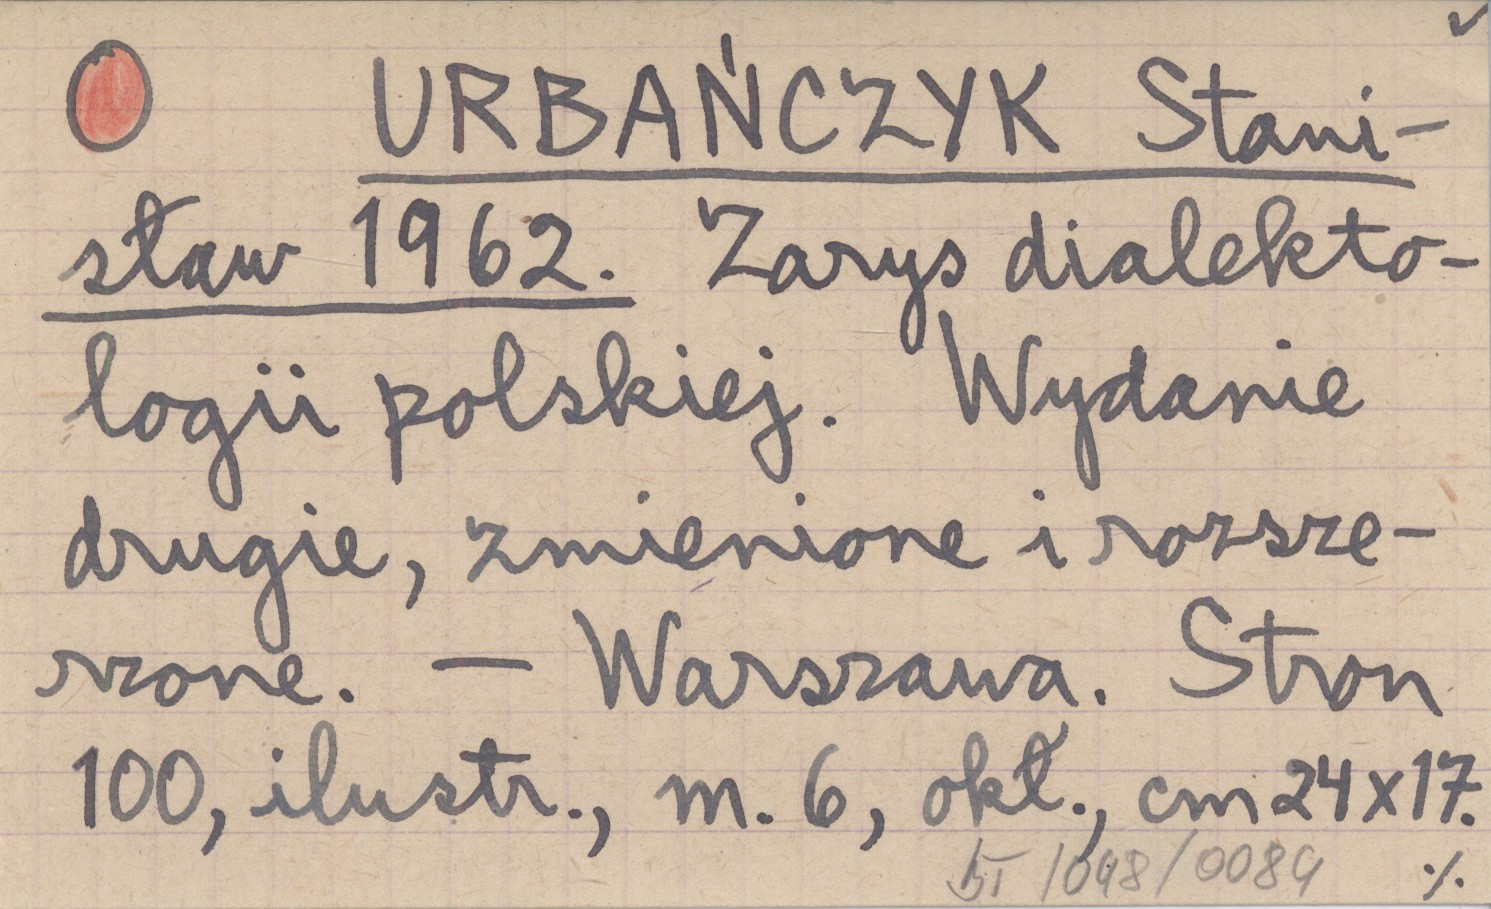 URBAŃCZYK Stani-
sław 1962. Zarys dialekto-
logii polskiej. Wydanie
drugie, zmienione i rozsze-
rzone. — Warszawa. Stron
100, ilustr., m. 6, okł., cm 24x17.
/048/0089 ./.